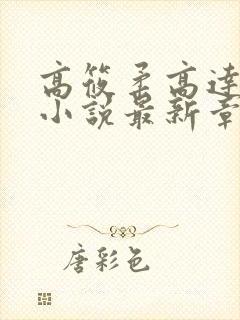 高筱柔高達
小説最新章
唐彩色